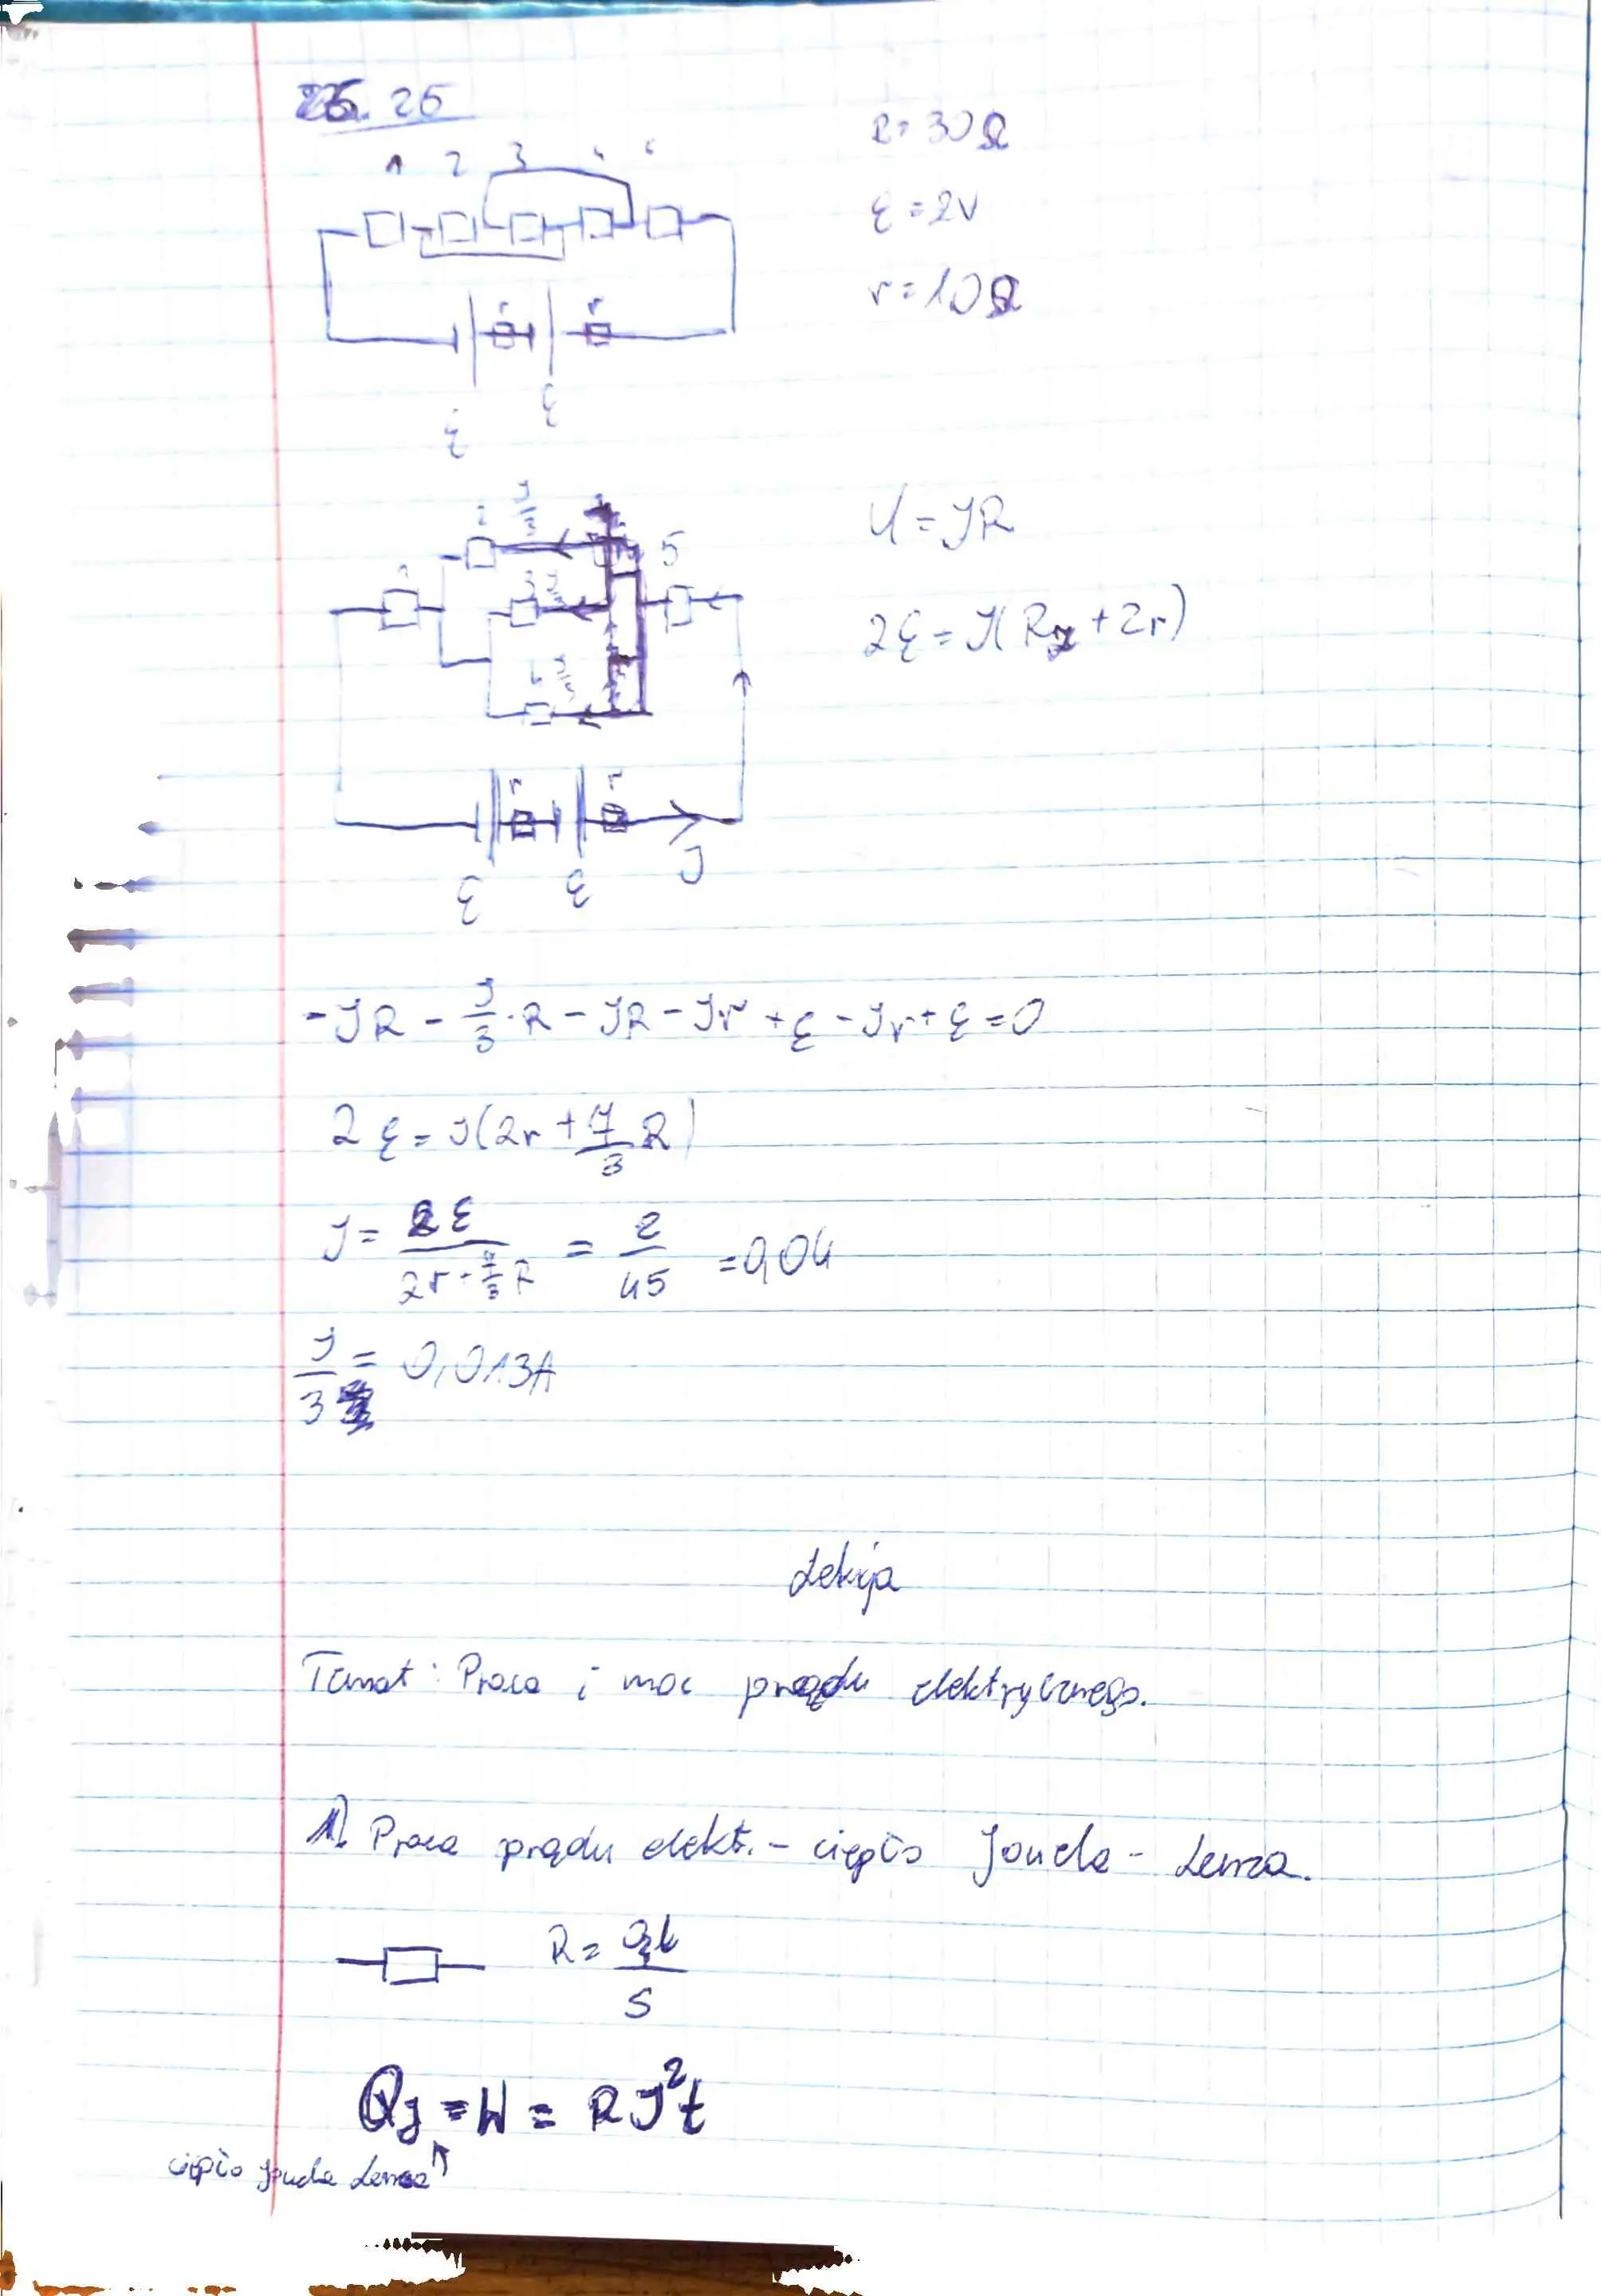 25. 25
1 2 3 4 5
R = 30Ω
ε = 2V
r = 10Ω
r r
ε ε
2 J/3 5
1 3 J/3
4 J/3
U = JR
2ε = J(Rz + 2r)
r r
ε ε J
-JR - J/3 · R - JR - Jr + ε - Jr + ε = 0
2ε = J(2r + 7/3 R)
J = 2ε / (2r + 7/3 R) = 2/45 = 0,04
J/3 = 0,013A
Lekcja
Temat: Praca i moc prądu elektrycznego.
1) Praca prądu elekt. - ciepło Joula - Lenza.
R = ϱl / S
QJ = W = RJ²t
ciepło Joula Lenza